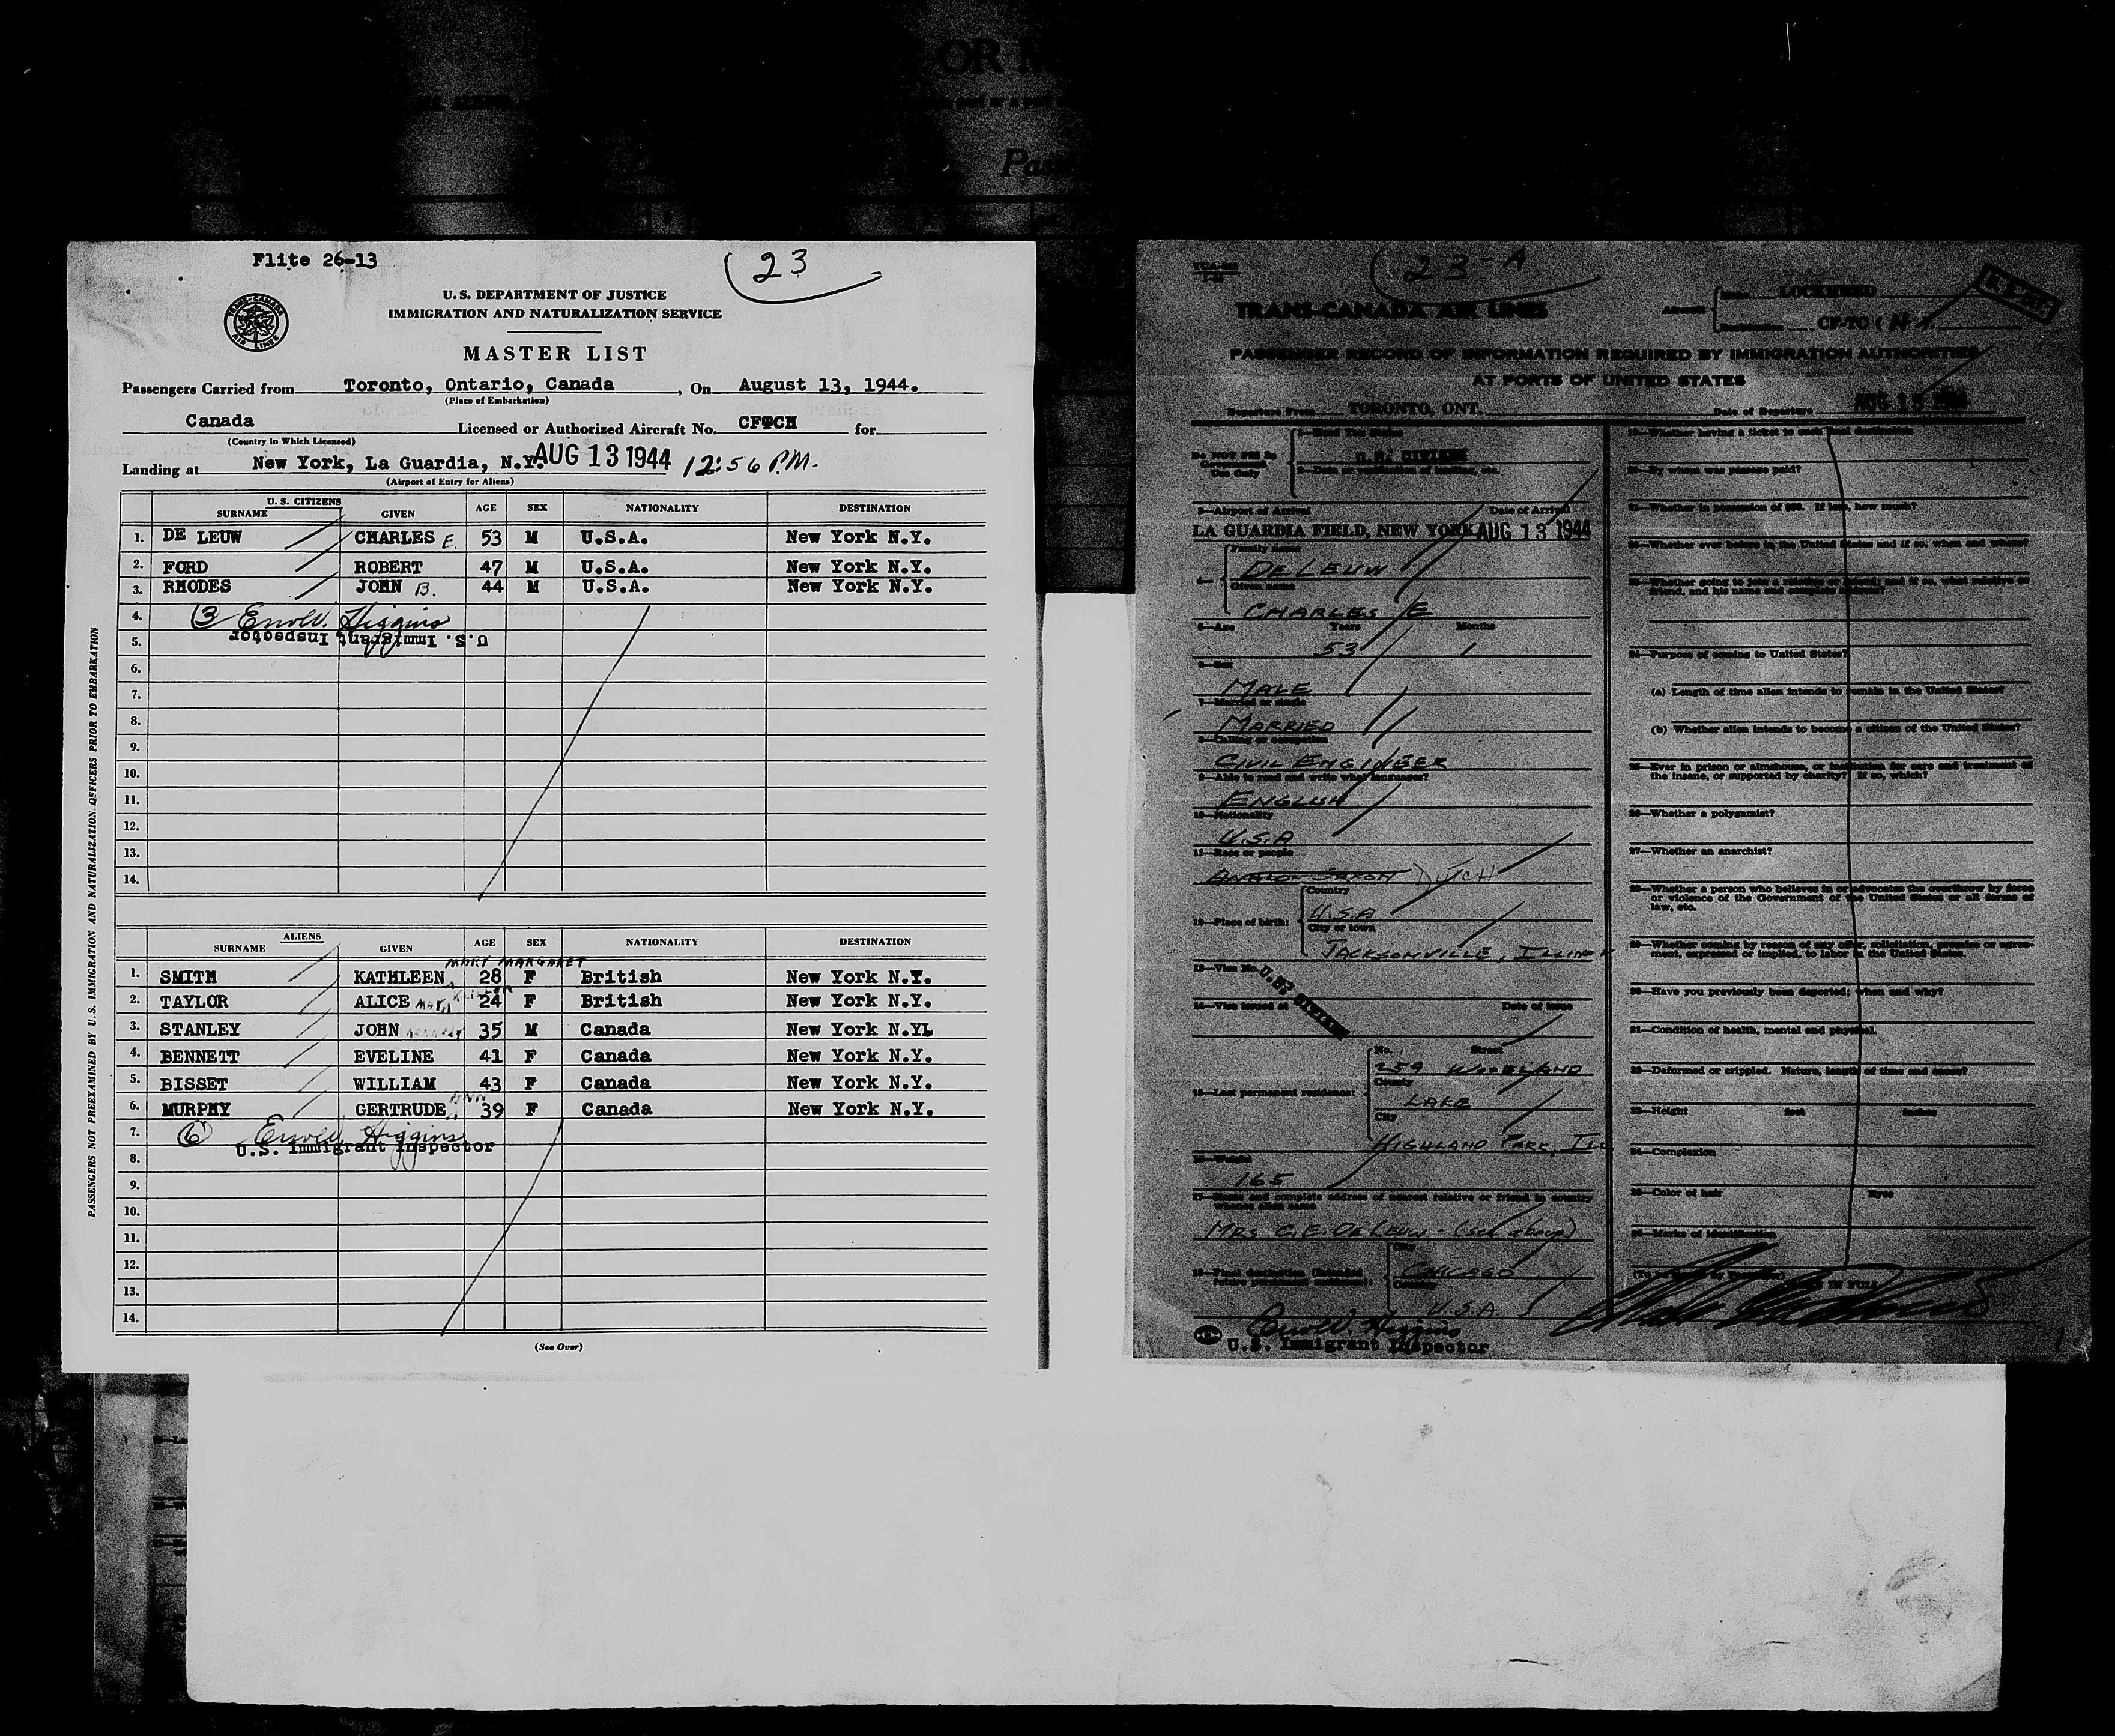 OR
Pass
Flite 26-13
23
TRANS-CANADA AIR LINES
U. S. DEPARTMENT OF JUSTICE
IMMIGRATION AND NATURALIZATION SERVICE
MASTER LIST
Passengers Carried from Toronto, Ontario, Canada, On August 13, 1944.
(Place of Embarkation)
Canada Licensed or Authorized Aircraft No. CFTCM for
(Country in Which Licensed)
Landing at New York, La Guardia, N.Y. AUG 13 1944 12:56 P.M.
(Airport of Entry for Aliens)
U. S. CITIZENS
SURNAME GIVEN AGE SEX NATIONALITY DESTINATION
1. DE LEUW CHARLES E. 53 M U.S.A. New York N.Y.
2. FORD ROBERT 47 M U.S.A. New York N.Y.
3. RHODES JOHN B. 44 M U.S.A. New York N.Y.
4. 3 Errol W. Higgins
5. U.S. Immigrant Inspector
6.
7.
8.
9.
10.
11.
12.
13.
14.
ALIENS
SURNAME GIVEN AGE SEX NATIONALITY DESTINATION
MARY MARGARET
1. SMITH KATHLEEN 28 F British New York N.Y.
2. TAYLOR ALICE MARY 24 F British New York N.Y.
3. STANLEY JOHN 35 M Canada New York N.Y.
4. BENNETT EVELINE 41 F Canada New York N.Y.
5. BISSET WILLIAM 43 F Canada New York N.Y.
6. MURPHY GERTRUDE ANN 39 F Canada New York N.Y.
7. 6 Errol W. Higgins
8. U.S. Immigrant Inspector
9.
10.
11.
12.
13.
14.
(See Over)
PASSENGERS NOT PREEXAMINED BY U. S. IMMIGRATION AND NATURALIZATION OFFICERS PRIOR TO EMBARKATION
23-A
TRANS-CANADA AIR LINES
Aircraft LOCKHEED
CF-TC (M)
PASSENGER RECORD OF INFORMATION REQUIRED BY IMMIGRATION AUTHORITIES
AT PORTS OF UNITED STATES
Departure From TORONTO, ONT. Date of Departure AUG 13 1944
Do NOT Fill In Government Use Only
1—Head Tax Status
U.S. CITIZEN
2—Date or verification of landing, etc.
3—Airport of Arrival Date of Arrival
LA GUARDIA FIELD, NEW YORK AUG 13 1944
4— Family name
DE LEUW
Given name
CHARLES E
5—Age Years Months
53 1
6—Sex
MALE
7—Married or single
MARRIED
8—Calling or occupation
CIVIL ENGINEER
9—Able to read and write what languages?
ENGLISH
10—Nationality
U.S.A
11—Race or people
ANGLO-SAXON DUTCH
12—Place of birth: Country
U.S.A
City or town
JACKSONVILLE, ILLINOIS
13—Visa No. U.S. CITIZEN
14—Visa issued at Date of issue
15—Last permanent residence: No. Street
259 WOODLAND
County
LAKE
City
HIGHLAND PARK, ILL
16—Weight
165
17—Name and complete address of nearest relative or friend in country whence alien came
MRS C. E. DE LEUW - (see above)
18—Final destination (intended future permanent residence): City
CHICAGO
Country
U.S.A.
Errol W. Higgins
U.S. Immigrant Inspector
19—Whether having a ticket to such final destination
20—By whom was passage paid?
21—Whether in possession of $50. If less, how much?
22—Whether ever before in the United States and if so, when and where?
23—Whether going to join a relative or friend; and if so, what relative or friend, and his name and complete address?
24—Purpose of coming to United States?
(a) Length of time alien intends to remain in the United States?
(b) Whether alien intends to become a citizen of the United States?
25—Ever in prison or almshouse, or institution for care and treatment of the insane, or supported by charity? If so, which?
26—Whether a polygamist?
27—Whether an anarchist?
28—Whether a person who believes in or advocates the overthrow by force or violence of the Government of the United States or all forms of law, etc.
29—Whether coming by reason of any offer, solicitation, promise or agreement, expressed or implied, to labor in the United States.
30—Have you previously been deported; when and why?
31—Condition of health, mental and physical.
32—Deformed or crippled. Nature, length of time and cause?
33—Height feet inches
34—Complexion
35—Color of hair Eyes
36—Marks of identification
IN FULL